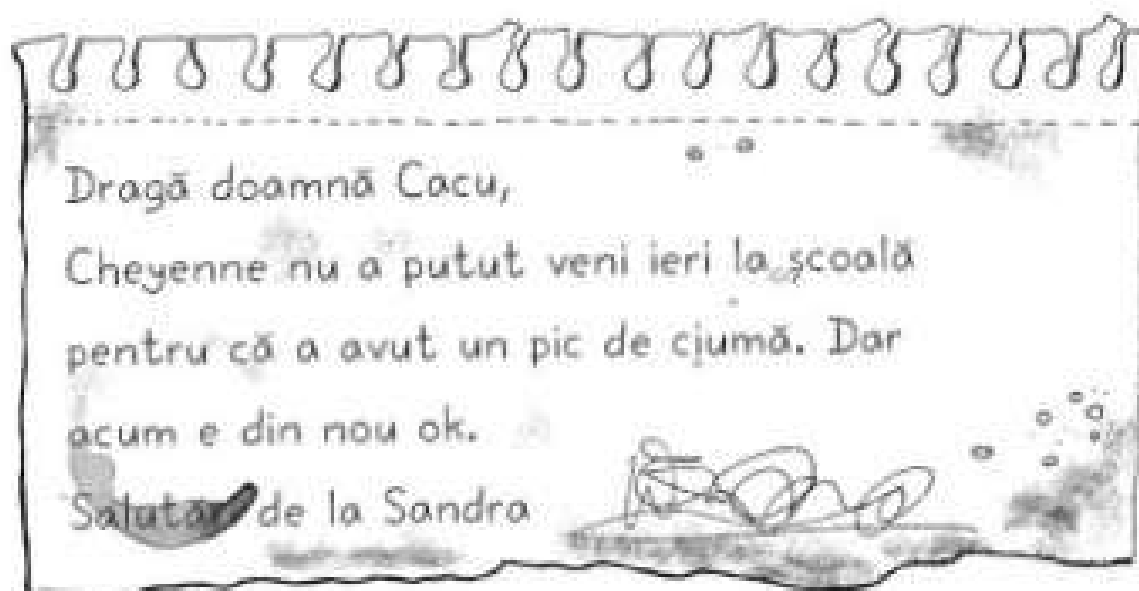 Dragă doamnă Cacu,
Cheyenne nu a putut veni ieri la școală
pentru că a avut un pic de cjumă. Dar
acum e din nou ok.
Salutări de la Sandra